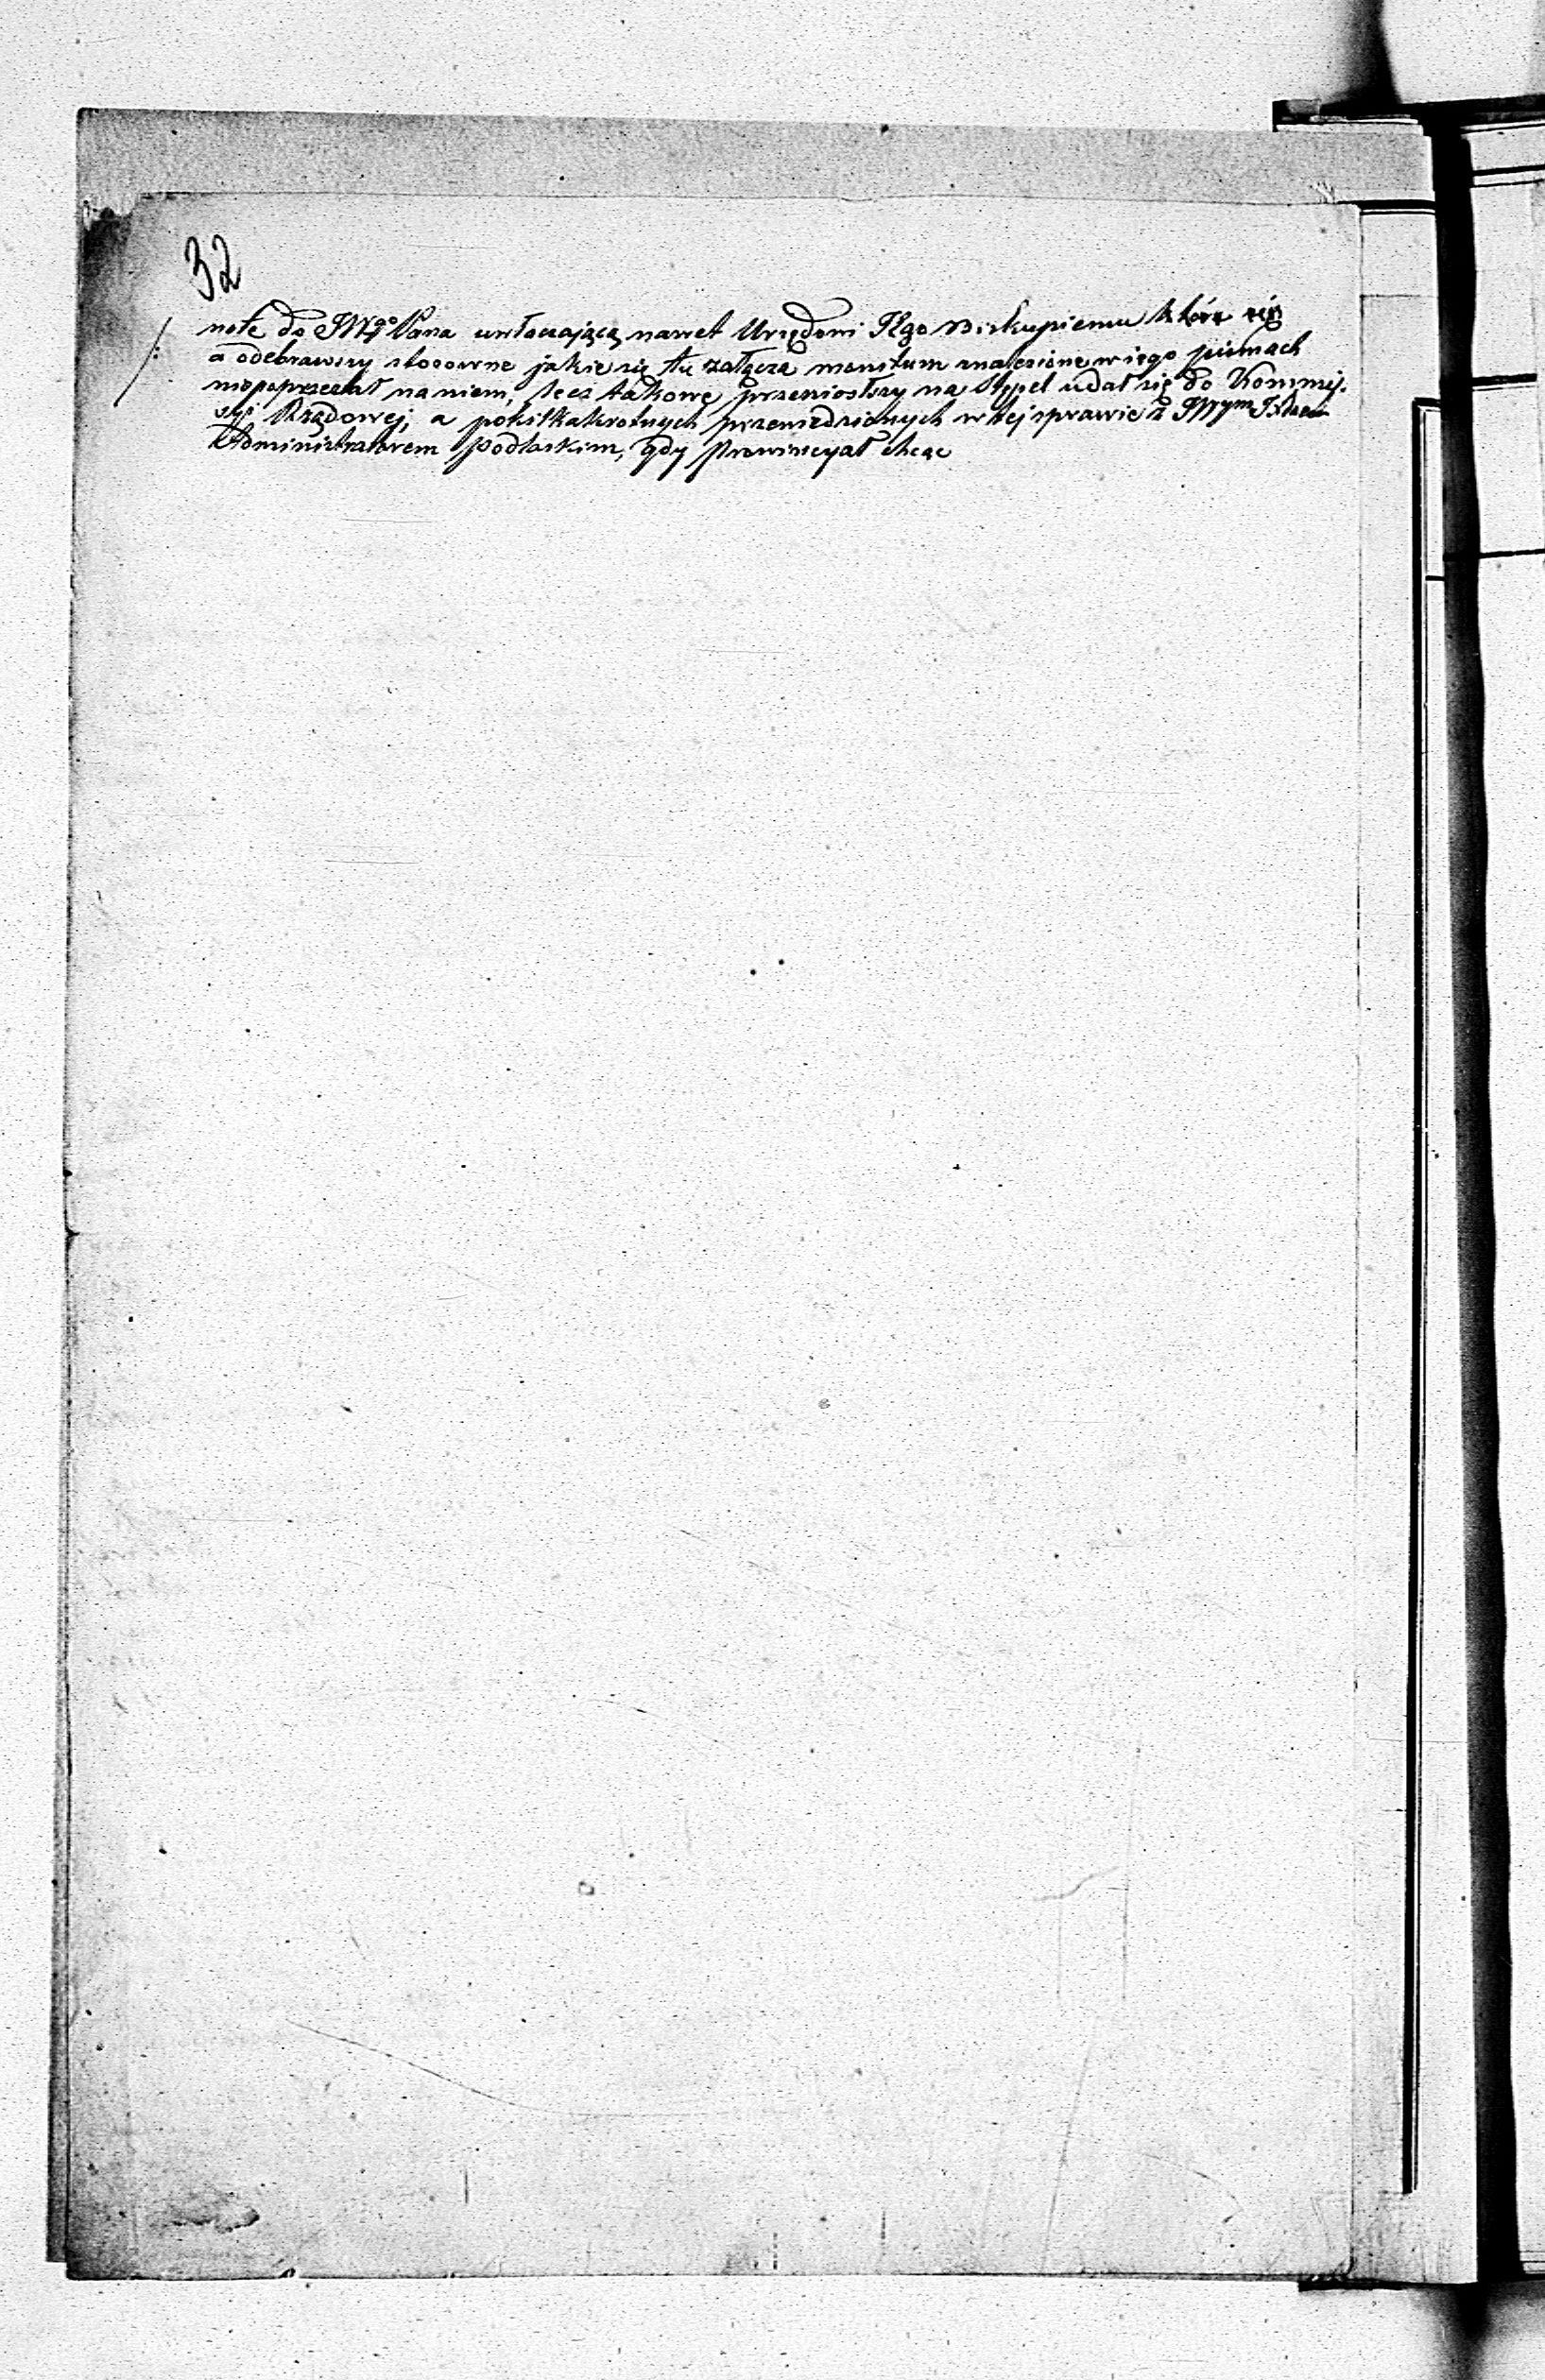 32
notę do JW<sup>go</sup> Pana uwłaczającą nawet Urzędowi Jego Biskupiemu
/: a odebrawszy stosowne jakie się tu załącza monitum znalezione w iego pismach
niepoprzestał na niem, lecz takowe przeniosłszy na Appel udał się do Kommis-
syi Rządowej; a pokilkakrotnych przewiedzionych w tej sprawie z JWym
Administratorem Podlaskim, gdy Prowincyał chcąc